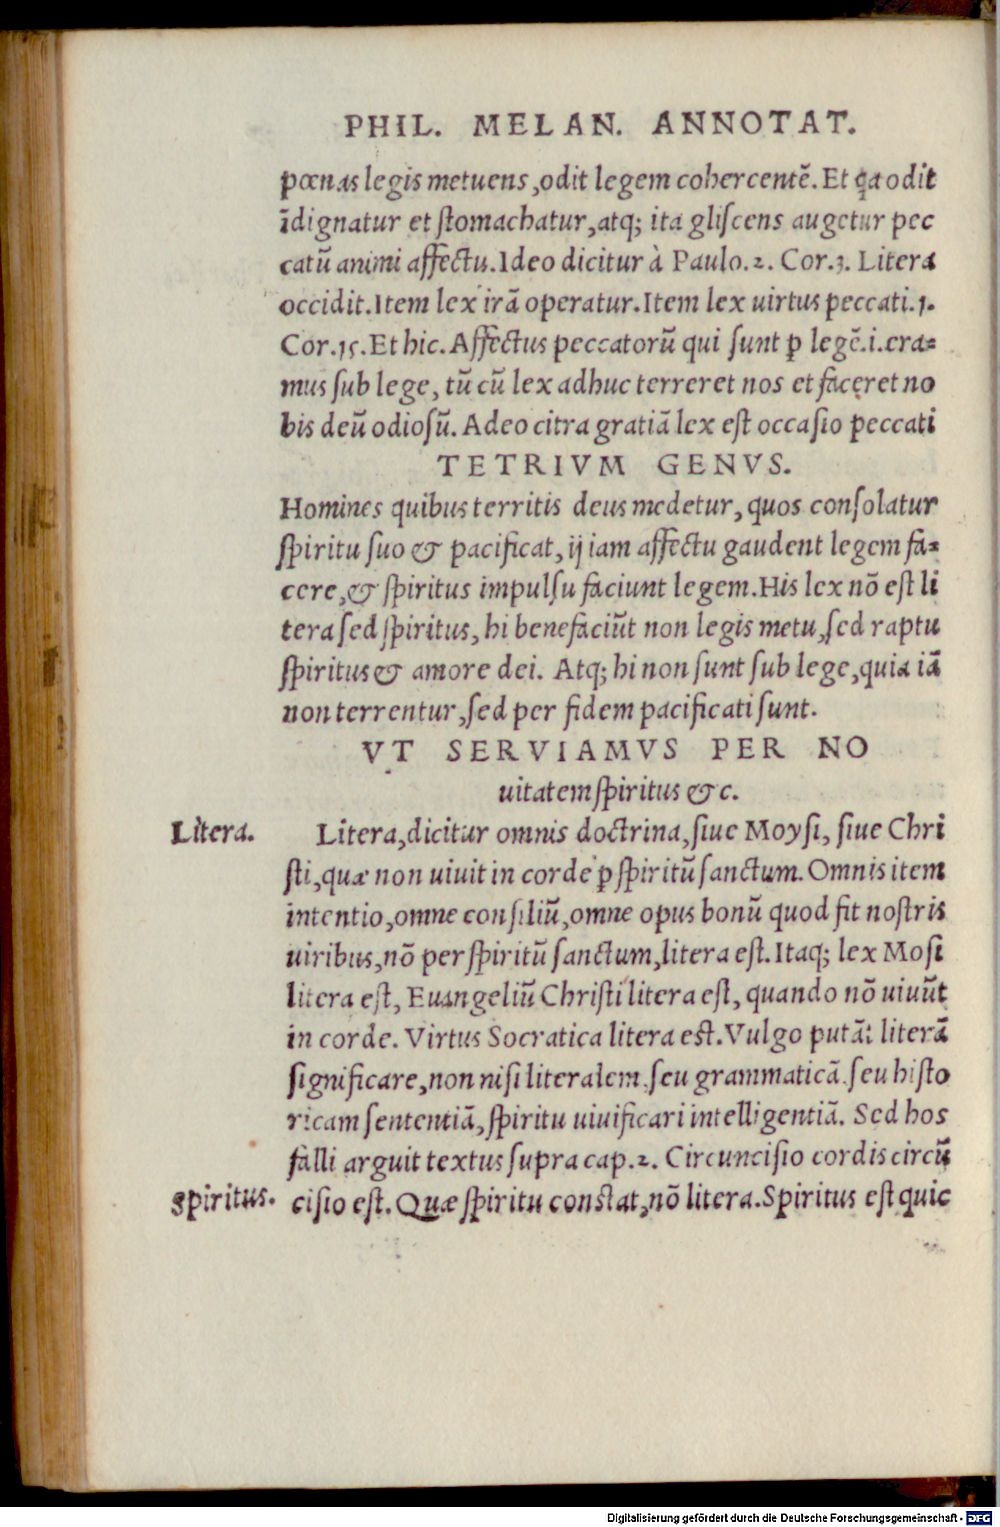 PHIL. MELAN. ANNOTAT.
pœnas legis metuens, odit legem cohercentē. Et q̃a odit
īdignatur et ſtomachatur, atq; ita gliſcens augetur pec
catū animi affectu. Ideo dicitur à Paulo. 2. Cor. 3. Litera
occidit. Item lex irā operatur. Item lex uirtus peccati. 1.
Cor. 15. Et hic. Affectus peccatorū qui ſunt ꝑ legē. i. era=
mus ſub lege, tū cū lex adhuc terreret nos et faceret no
bis deū odioſū. Adeo citra gratiā lex eſt occaſio peccati
TETRIVM GENVS.
Homines quibus territis deus medetur, quos conſolatur
ſpiritu ſuo & pacificat, ij iam affectu gaudent legem fa=
cere, & ſpiritus impulſu faciunt legem. His lex nō eſt li
tera ſed ſpiritus, hi benefaciūt non legis metu, ſed raptu
ſpiritus & amore dei. Atq; hi non ſunt ſub lege, quia iā
non terrentur, ſed per fidem pacificati ſunt.
VT SERVIAMVS PER NO
uitatem ſpiritus & c.
Litera. Litera, dicitur omnis doctrina, ſiue Moyſi, ſiue Chri
ſti, quæ non uiuit in corde ꝑ ſpiritū ſanctum. Omnis item
intentio, omne conſiliū, omne opus bonū quod fit noſtris
uiribus, nō per ſpiritū ſanctum, litera eſt. Itaq; lex Moſi
litera eſt, Euangeliū Chriſti litera eſt, quando nō uiuūt
in corde. Virtus Socratica litera est. Vulgo putāt literā
ſignificare, non niſi literalem. ſeu grammaticā. ſeu hiſto
ricam ſententiā, ſpiritu uiuificari intelligentiā. Sed hos
falli arguit textus ſupra cap. 2. Circunciſio cordis circū
Spiritus. ciſio eſt. Quæ ſpiritu constat, nō litera. Spiritus eſt quic
Digitalisierung gefördert durch die Deutsche Forschungsgemeinschaft - DFG